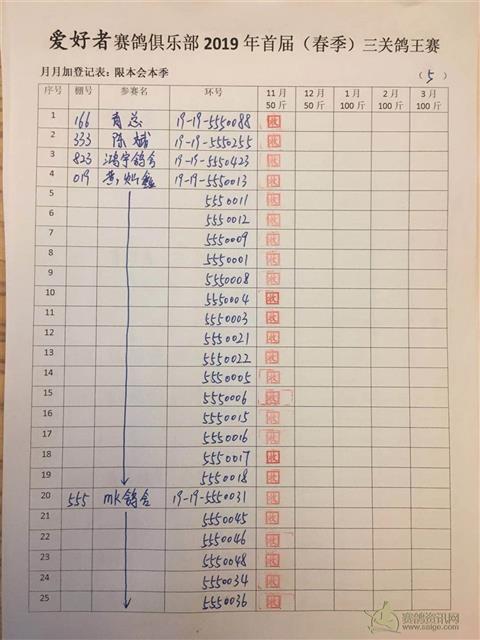 爱好者赛鸽俱乐部 2019 年首届（春季）三关鸽王赛
月月加登记表：限本会本季 （5）
序号 棚号 参赛名 环号 11月 50斤 12月 50斤 1月 100斤 2月 100斤 3月 100斤
1 166 肖总 19-19-5550088
2 333 陈斌 19-19-5550255
3 823 鸿宇鸽舍 19-19-5550423
4 019 19-19-5550013
5 5550011
6 5550012
7 5550009
8 5550001
9 5550008
10 5550004
11 5550003
12 5550021
13 5550022
14 5550005
15 5550006
16 5550015
17 5550016
18 5550017
19 5550018
20 555 mk鸽舍 19-19-5550031
21 5550045
22 5550046
23 5550048
24 5550034
25 5550036
赛鸽资讯网
www.saige.com